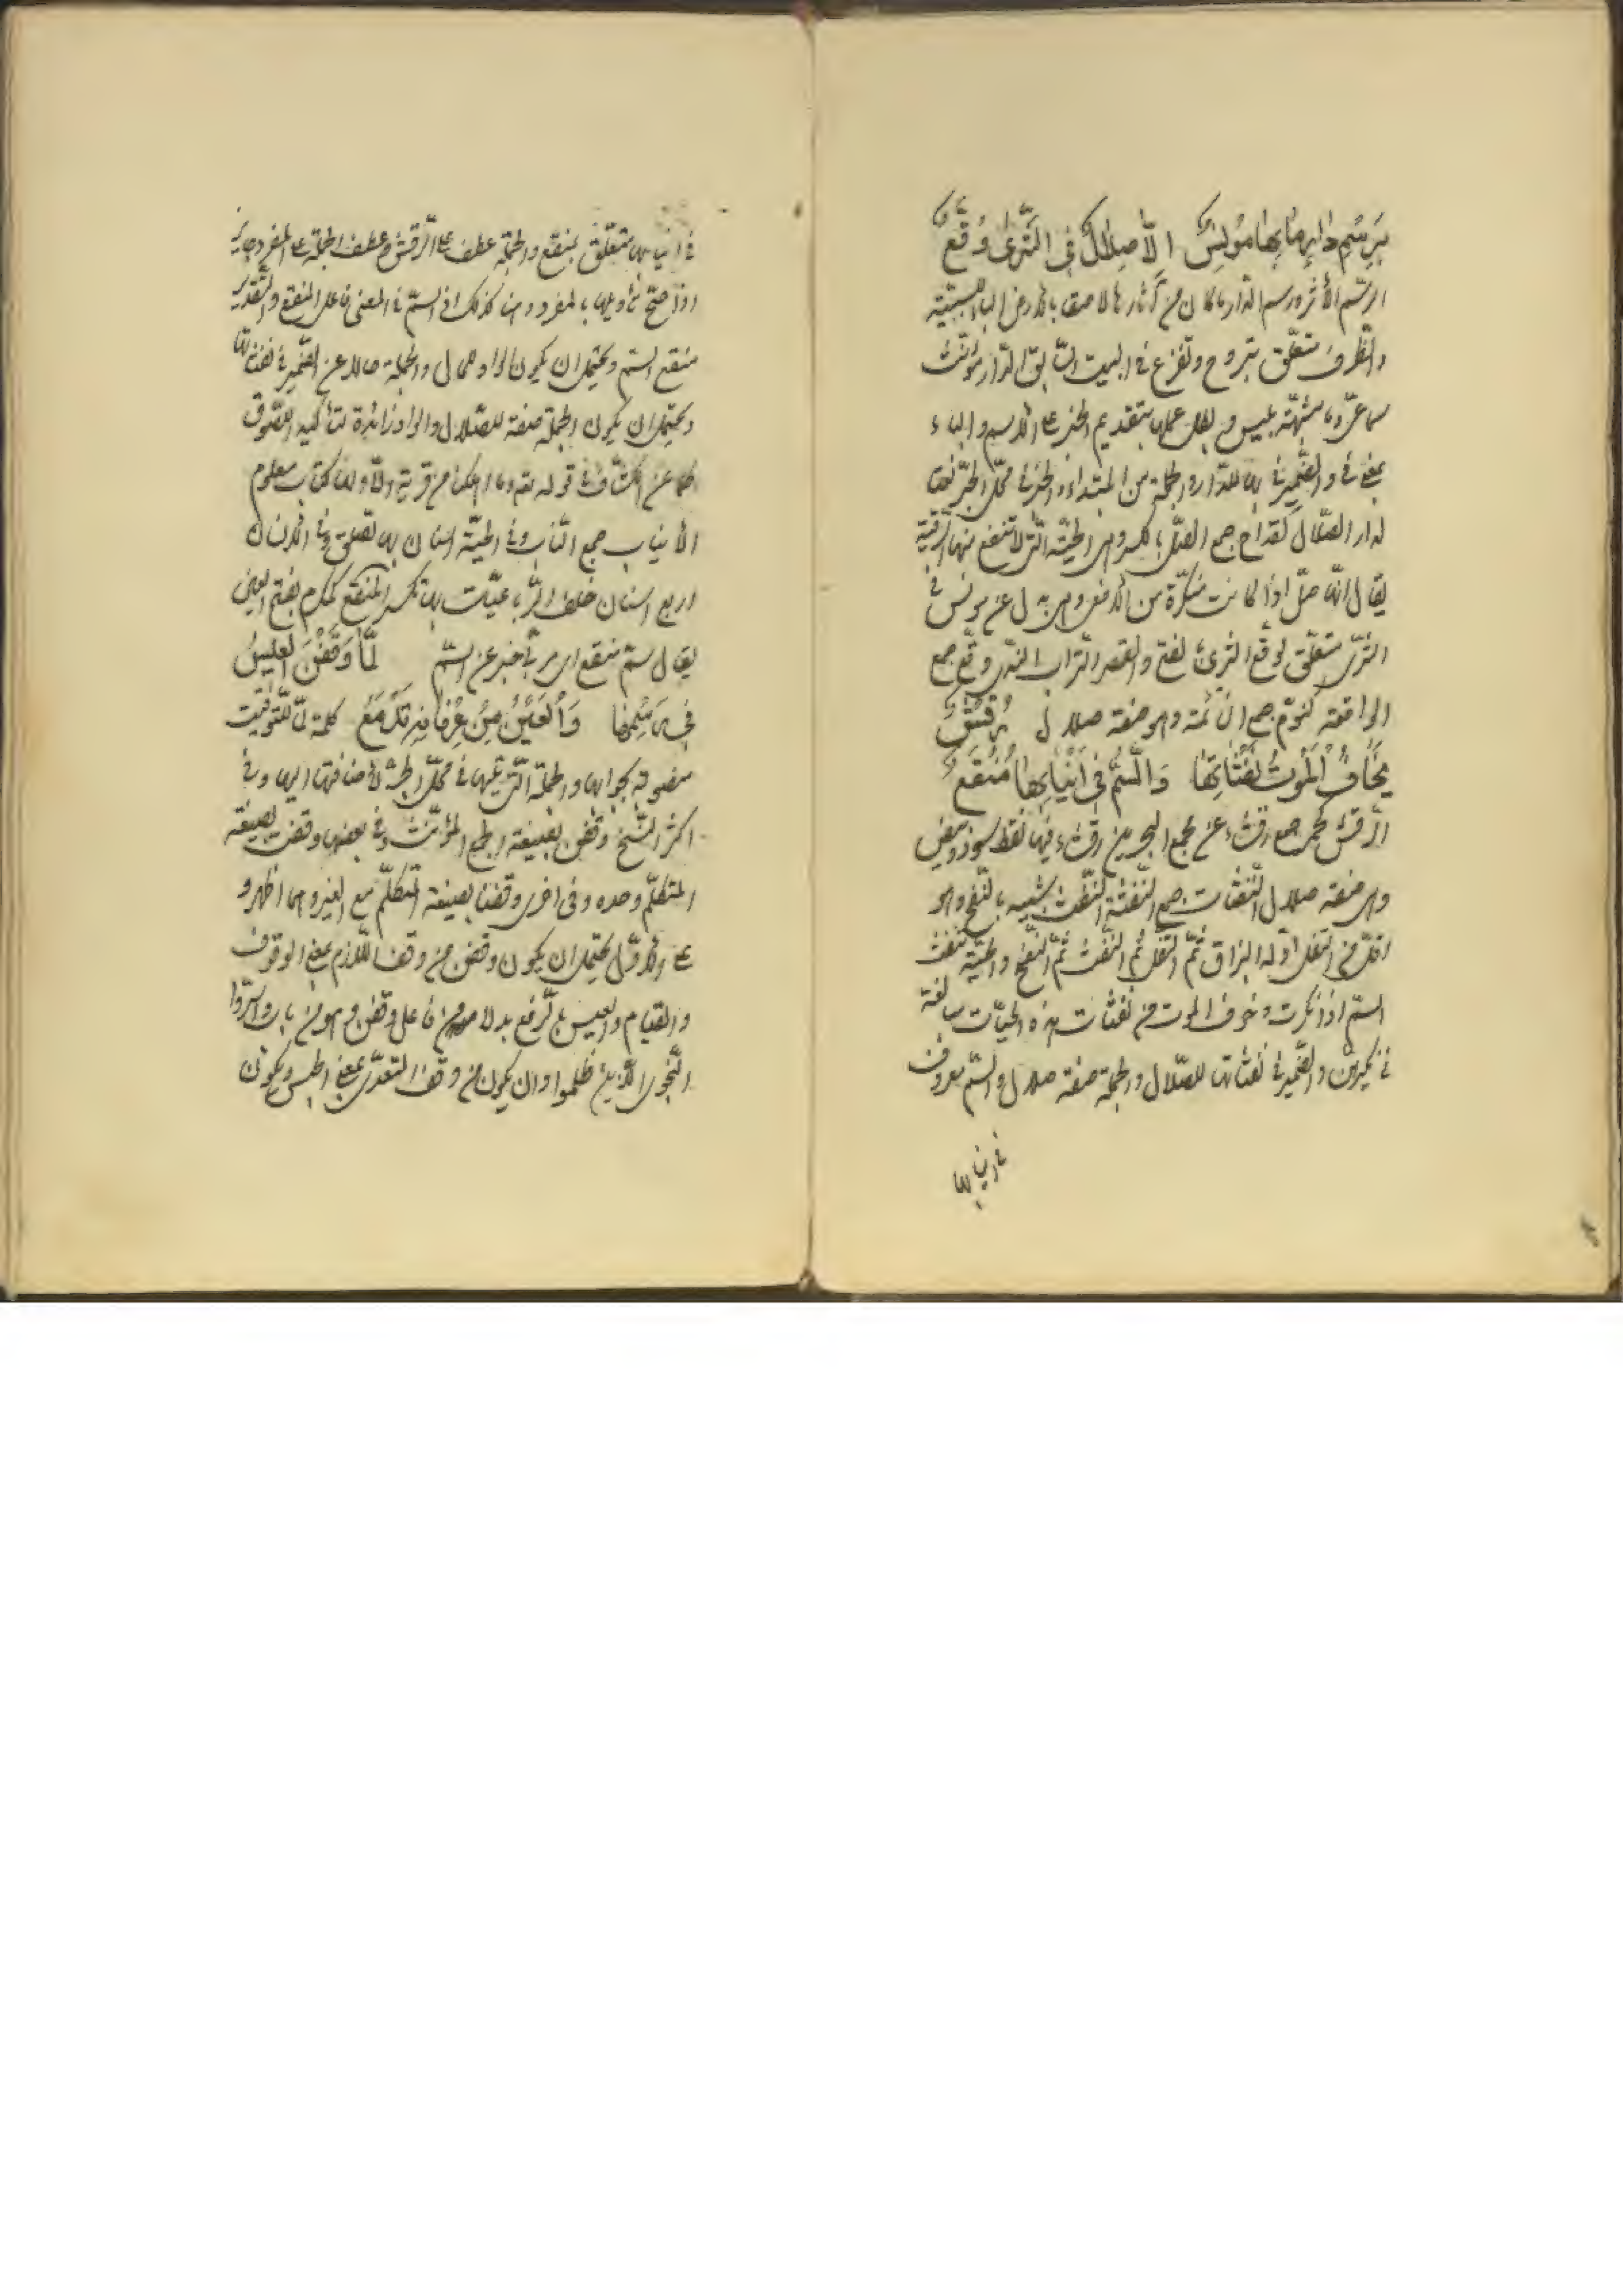 بِرَسْمِ دَارٍ مَا بِهَا مُونِسٌ الّا صِلَالٌ فِي الثَّرَى وُقَّعٌ
الرّسم الأثر ورسم الدار ما كان من آثارها لاصقا بالارض الباء للسببيّة
والظرف متعلّق بتروح وتفزع في البيت السّابق الدّار مؤنّث
سماعيّ وما مشبهّة بليس وبطل عملها بتقديم الخبر على الاسم والباء
بمعنى في والضمير في بها للدّار والجملة من المبتداء والخبر في محلّ الجرّ نعتا
لدار الصّلال كقداح جمع الصّلّ بالكسر وهي الحيّة الّتي لا تنفع منها الرّقية
يقال انّها صلّ اذا كانت منكرة من الافعى وهي بدل عن مونس في
الثرى متعلّق لوقّع الثرى بالفتح والقصر التّراب النّدي وقّع جمع
الواقعة كنوّم جمع النّائمة وهو صفة صلال رُقْشٌ
يَخَافُ الْمَوْتُ نَفَثَاتِهَا وَالسَّمُّ فِي أَنْيَابِهَا مُنْقَعٌ
الرّقش كحمر جمع رقشاء عن مجمع البحرين رقشاء فيها نقط سود وبيض
وهي صفة صلال النّفثات جمع النّفثة النّفث شبيه بالنّفخ وهو
اقلّ من التفل اوّله البزاق ثمّ التفل ثمّ النّفث ثمّ النّفخ والحيّة تنفث
السمّ اذا نكرت وخوف الموت من نفثات هذه الحيّات مبالغة
والضمير في نفثاتها للصّلال والجملة صفة صلال والسّم معروف
في انيابها
في انيابها متعلّق بمنقع والجملة عطف على الرّقش وعطف الجملة على المفرد جايز
اذا صحّ تأويلها بالمفرد وهنا كذلك اذ السمّ في المعنى فاعل المنقع والتّقدير
منقع السم ويحتمل ان يكون الواو للحال والجملة حالا عن الضّمير في نفثاتها
ويحتمل ان يكون الجملة صفة للصّلال والواو زائدة لتأكيد اللّصوق
كما عن الكشّاف في قوله تع وما اهلكنا من قرية الّا ولها كتاب معلوم
الأنياب جمع النّاب وفي الحيّة اسنان بها تقلق وفي الانسان
اربع اسنان خلف الرّباعيّات بها تكسر المنقع كمكرم بفتح العين
يقال سمّ منقع اي مربّى خبر عن السّم لَمَّا وَقَفْنَ الْعِيسُ
فِي رَسْمِهَا وَالْعَيْنُ مِنْ عِرْفَانِهِ تَدْمَعُ كلمة لمّا للتّوقيت
منصوبة بجوابها والجملة الّتي تليها في محلّ الجرّ لاضافتها اليها وفي
اكثر النّسخ وقفن بصيغة الجمع المؤنّث وفي بعضها وقفت بصيغة
المتكلّم وحده وفي اخرى وقفنا بصيغة المتكلّم مع الغير وهما اظهر و
على الاوّل يحتمل ان يكون وقفن من وقف اللّازم بمعنى الوقوف
والقيام والعيس بالرّفع بدلا من فاعل وقفن وهو من باب واسرّوا
النّجوى الّذين ظلموا وان يكون من وقف المتعدّي بمعنى الحبس ويكون